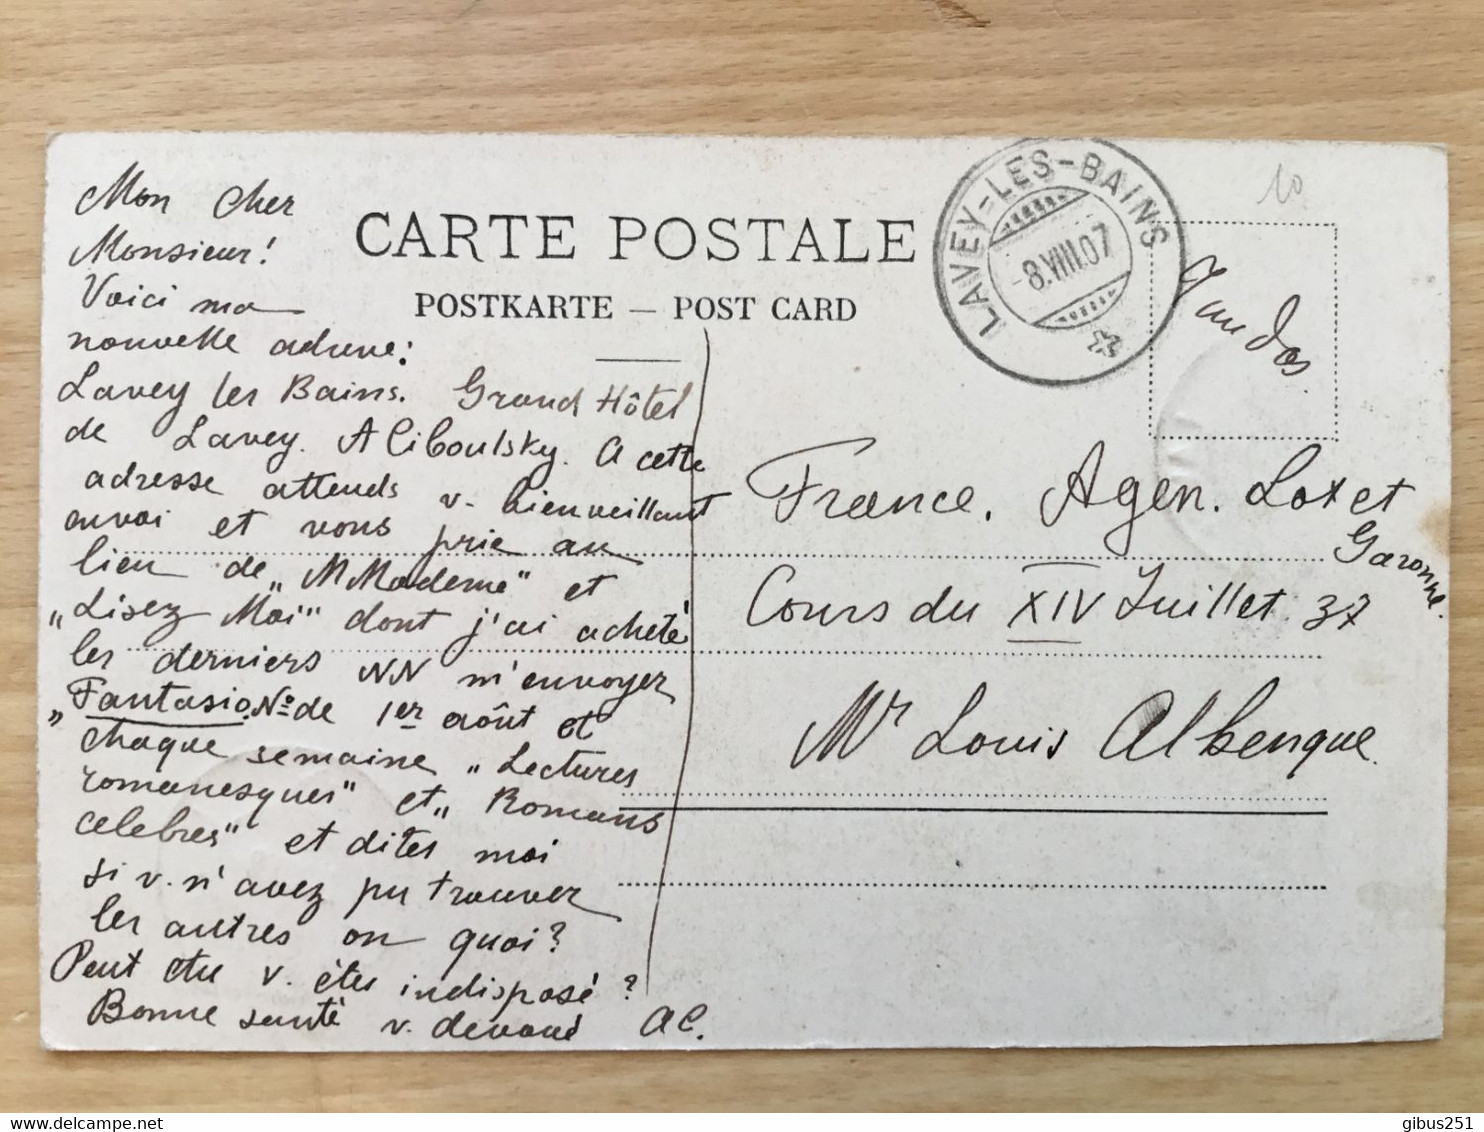 Mon cher
Monsieur!
Voici ma
nouvelle adresse:
Lavey les Bains. Grand Hôtel
de Lavey. A Ciboulsky. A cette
adresse attends v. bienveillant
envoi et vous prie au
lieu de „M Maderne" et
„Lisez Moi" dont j'ai acheté
les derniers NN m'envoyer
„Fantasio. No de 1er août et
chaque semaine „Lectures
romanesques" et „Romans
celebres" et dites moi
si v. n'avez pu trouver
les autres ou quoi?
Peut être v. êtes indisposé?
Bonne santé v. devoué AC.
CARTE POSTALE
POSTKARTE — POST CARD
LAVEY-LES-BAINS
-8.VIII.07
10
au dos
France. Agen. Lot et
Garonne.
Cours du XIV Juillet. 37
Mr Louis Albenque.
gibus251